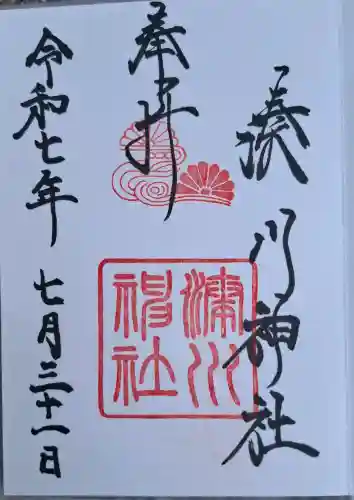 湊川神社
奉拝
湊川神社
令和七年 七月三十一日